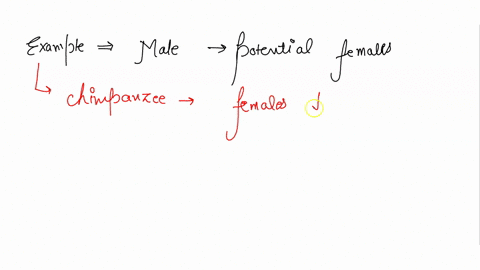 Example ⇒ Male → potential females
↳ chimpanzee → females ↓